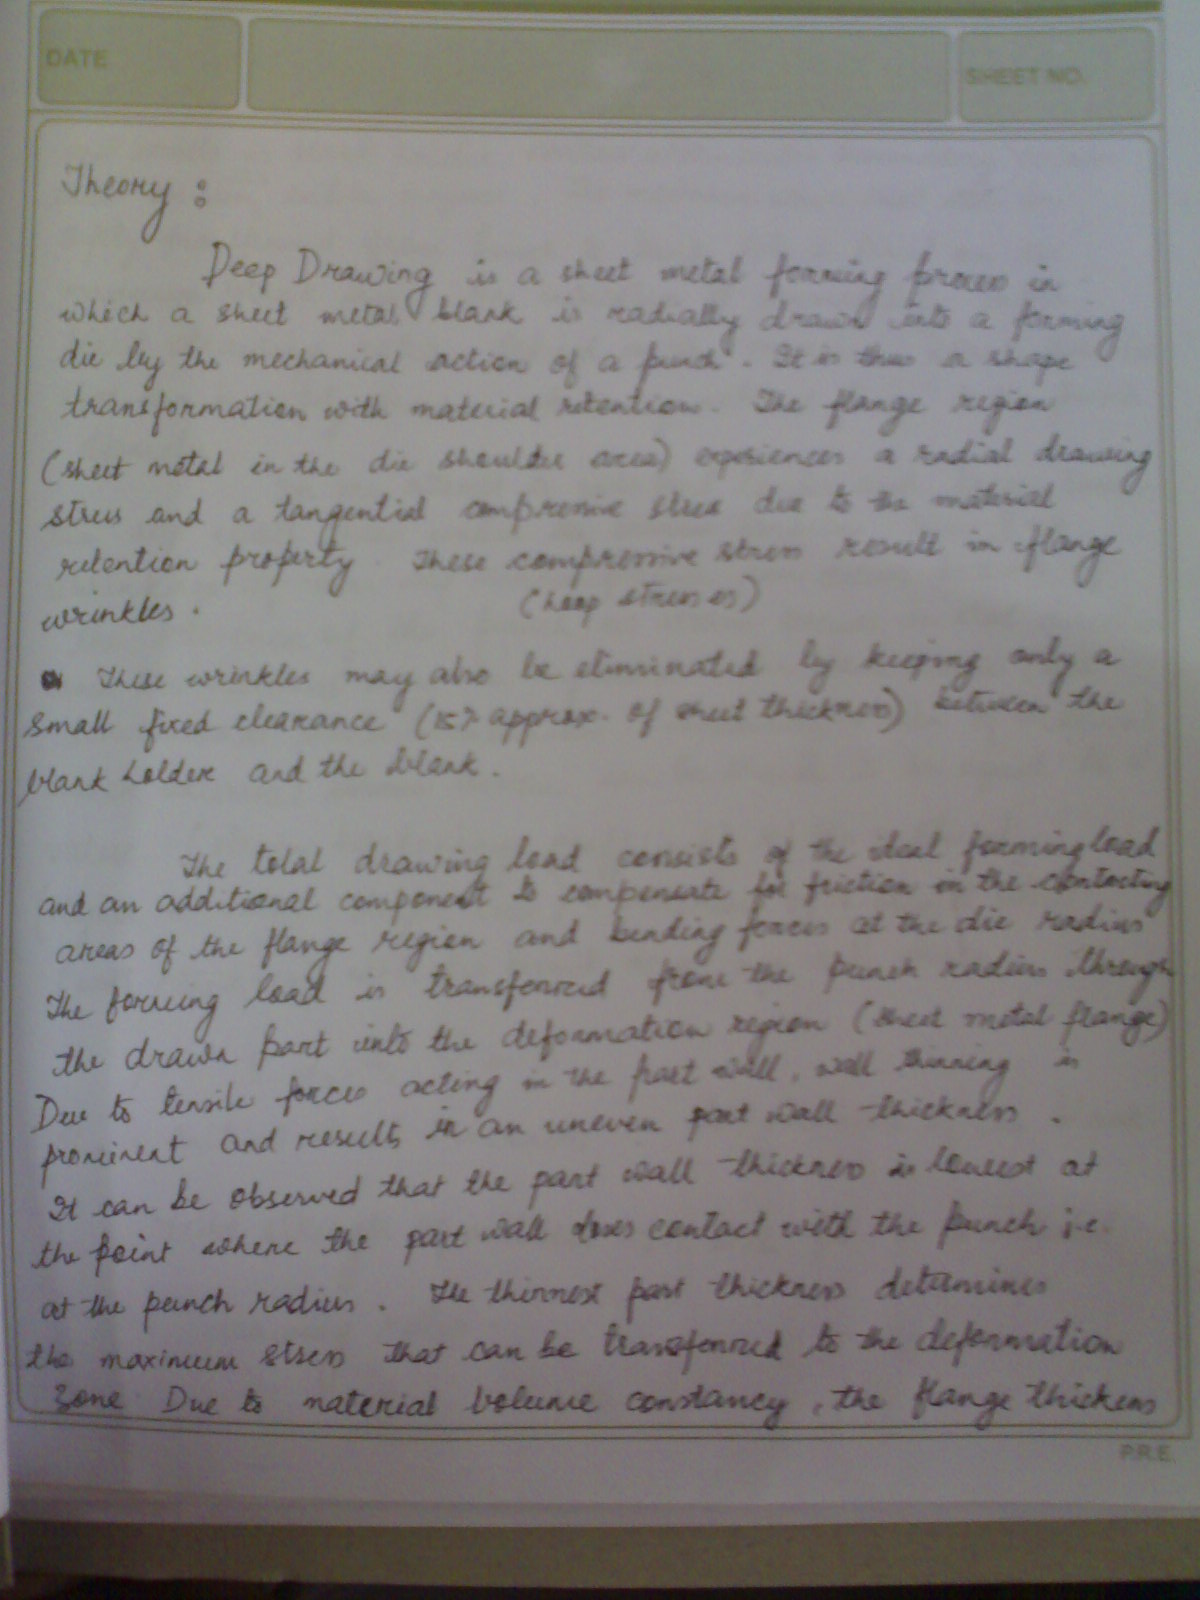 DATE
SHEET NO.
Theory :
Deep Drawing is a sheet metal forming process in
which a sheet metal blank is radially drawn into a forming
die by the mechanical action of a punch. It is thus a shape
transformation with material retention. The flange region
(sheet metal in the die shoulder area) experiences a radial drawing
stress and a tangential compressive stress due to the material
retention property. These compressive stress result in flange
wrinkles. (hoop stresses)
These wrinkles may also be eliminated by keeping only a
small fixed clearance (15% approx. of sheet thickness) between the
blank holder and the blank.
The total drawing load consists of the ideal forming load
and an additional component to compensate for friction in the contacting
areas of the flange region and bending forces at the die radius
The forming load is transferred from the punch radius through
the drawn part into the deformation region (sheet metal flange)
Due to tensile forces acting in the part wall, wall thinning is
prominent and results in an uneven part wall thickness.
It can be observed that the part wall thickness is lowest at
the point where the part wall loses contact with the punch i.e.
at the punch radius. The thinnest part thickness determines
the maximum stress that can be transferred to the deformation
zone Due to material volume constancy, the flange thickens
P.R.E.